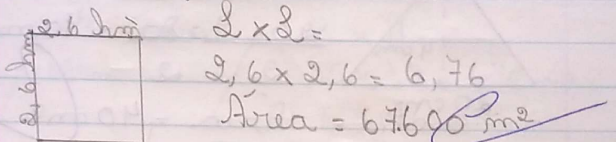 2,6 hm
2,6 hm
L x L =
2,6 x 2,6 = 6,76
Área = 67.600 m²